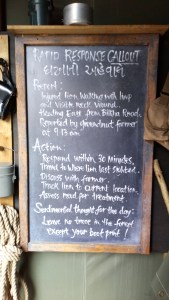 RAPID RESPONSE CALLOUT
Report:
Injured lion walking with limp
and visible neck wound.
Heading East from Babha Road.
Reported by groundnut farmer
at 9.13 am.
Action:
Respond within 30 minutes.
Travel to where lion last sighted.
Discuss with farmer.
Track lion to current location.
Assess need for treatment.
Sentimental thought for the day:
Leave no trace in the forest
except your boot print!